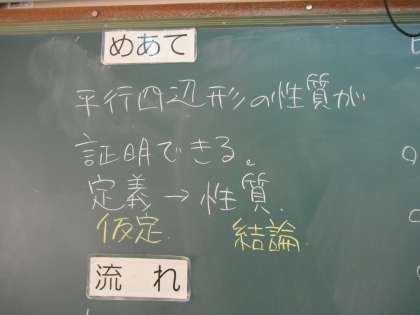 めあて
平行四辺形の性質が
証明できる。
定義→性質
仮定 結論
流れ